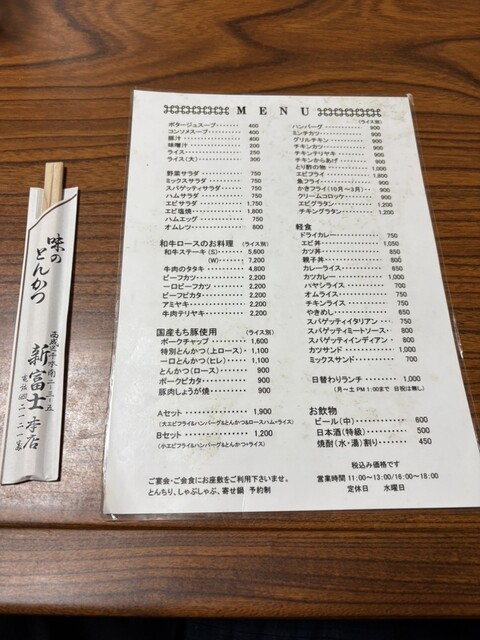 味の
とんかつ
新富士本店
MENU
ポタージュスープ 400
コンソメスープ 400
豚汁 400
味噌汁 200
ライス 250
ライス(大) 300
野菜サラダ 750
ミックスサラダ 750
スパゲッティサラダ 750
ハムサラダ 750
エビサラダ 1,750
エビ塩焼 1,800
ハムエッグ 750
オムレツ 800
和牛ロースのお料理 (ライス別)
和牛ステーキ(S) 5,600
(W) 7,200
牛肉のタタキ 4,800
ビーフカツ 2,200
一口ビーフカツ 2,200
ビーフピカタ 2,200
アミヤキ 2,200
牛肉テリヤキ 2,200
国産もち豚使用 (ライス別)
ポークチャップ 1,600
特別とんかつ(上ロース) 1,100
一口とんかつ(ヒレ) 1,100
とんかつ(ロース) 900
ポークピカタ 900
豚肉しょうが焼 900
Aセット 1,900
(大エビフライ&ハンバーグ&とんかつ&ロースハム+ライス)
Bセット 1,200
(小エビフライ&ハンバーグ&とんかつ+ライス)
ご宴会・ご会食にお座敷をご利用下さいませ。
とんちり、しゃぶしゃぶ、寄せ鍋 予約制
(ライス別)
ハンバーグ 900
ミンチカツ 900
グリルチキン 900
チキンカツ 900
チキンテリヤキ 900
チキンからあげ 900
とり酢の物 1,000
エビフライ 1,800
魚フライ 900
かきフライ(10月~3月) 900
クリームコロッケ 900
エビグラタン 1,200
チキングラタン 1,200
軽食
ドライカレー 750
エビ丼 1,050
カツ丼 850
親子丼 800
カレーライス 650
カツカレー 1,000
ハヤシライス 700
オムライス 750
チキンライス 750
やきめし 650
スパゲッティイタリアン 750
スパゲッティミートソース 800
スパゲッティインディアン 800
カツサンド 1,000
ミックスサンド 750
日替わりランチ 1,000
(月~土 PM 1:00まで 日祝は無し)
お飲物
ビール(中) 600
日本酒(特級) 500
焼酎(水・湯)割り 450
税込み価格です
営業時間 11:00~13:00/16:00~18:00
定休日 水曜日